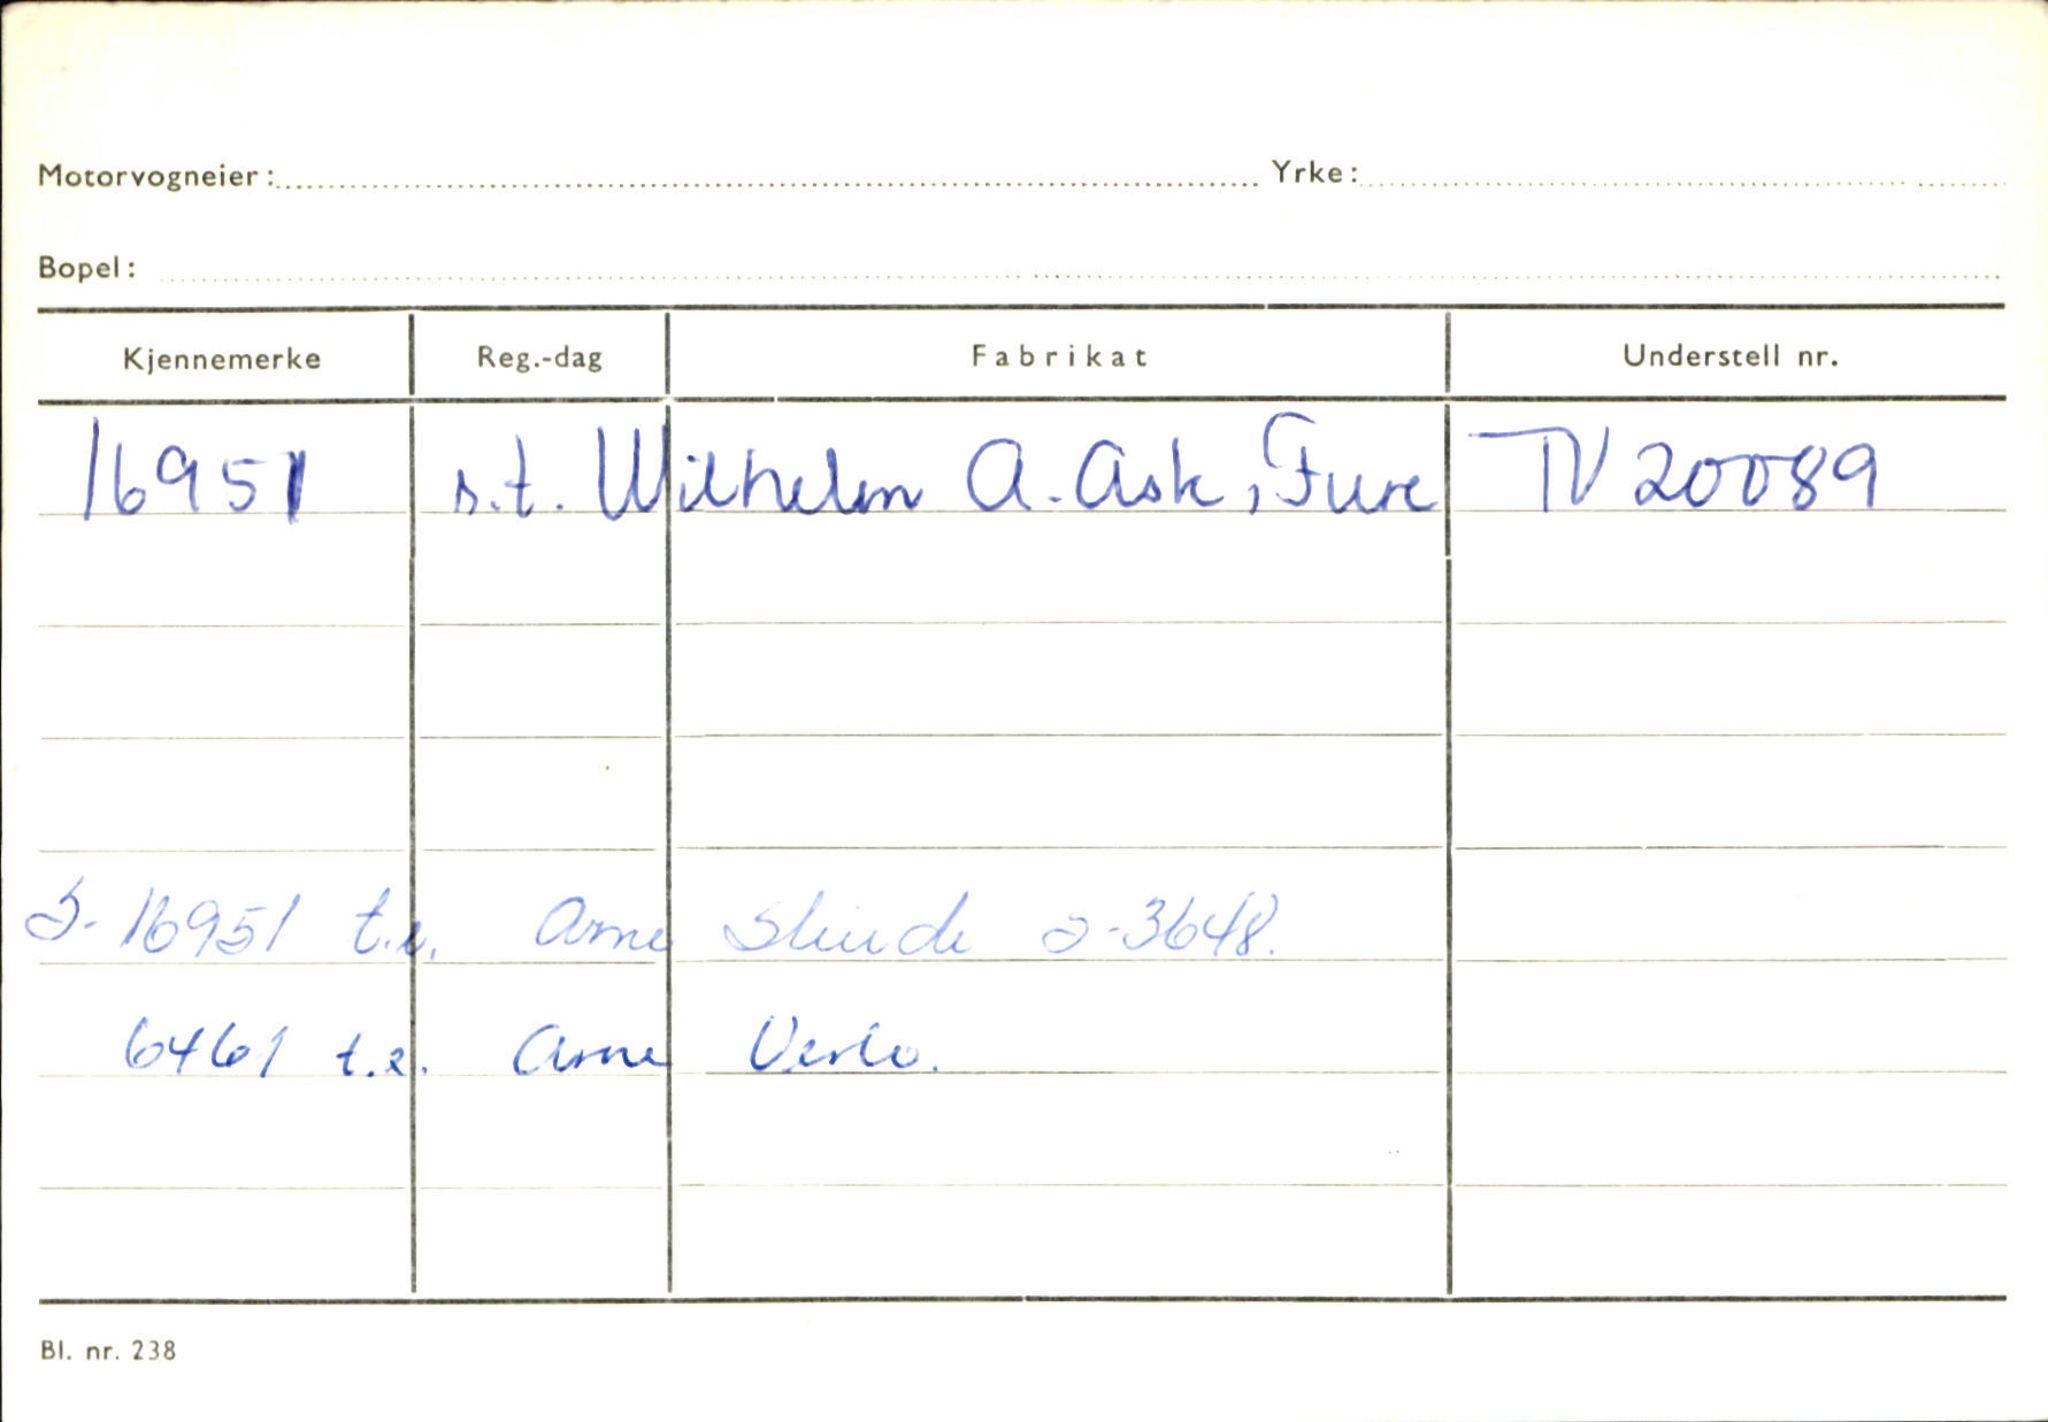 Motorvogneier: Yrke:
Bopel:
Kjennemerke Reg.-dag Fabrikat Understell nr.
16951 s.t. Wilhelm A. Ask, Fure TV 20089
S-16951 t.e. Arne Slinde S-3648.
6461 t.e. Arne
Bl. nr. 238